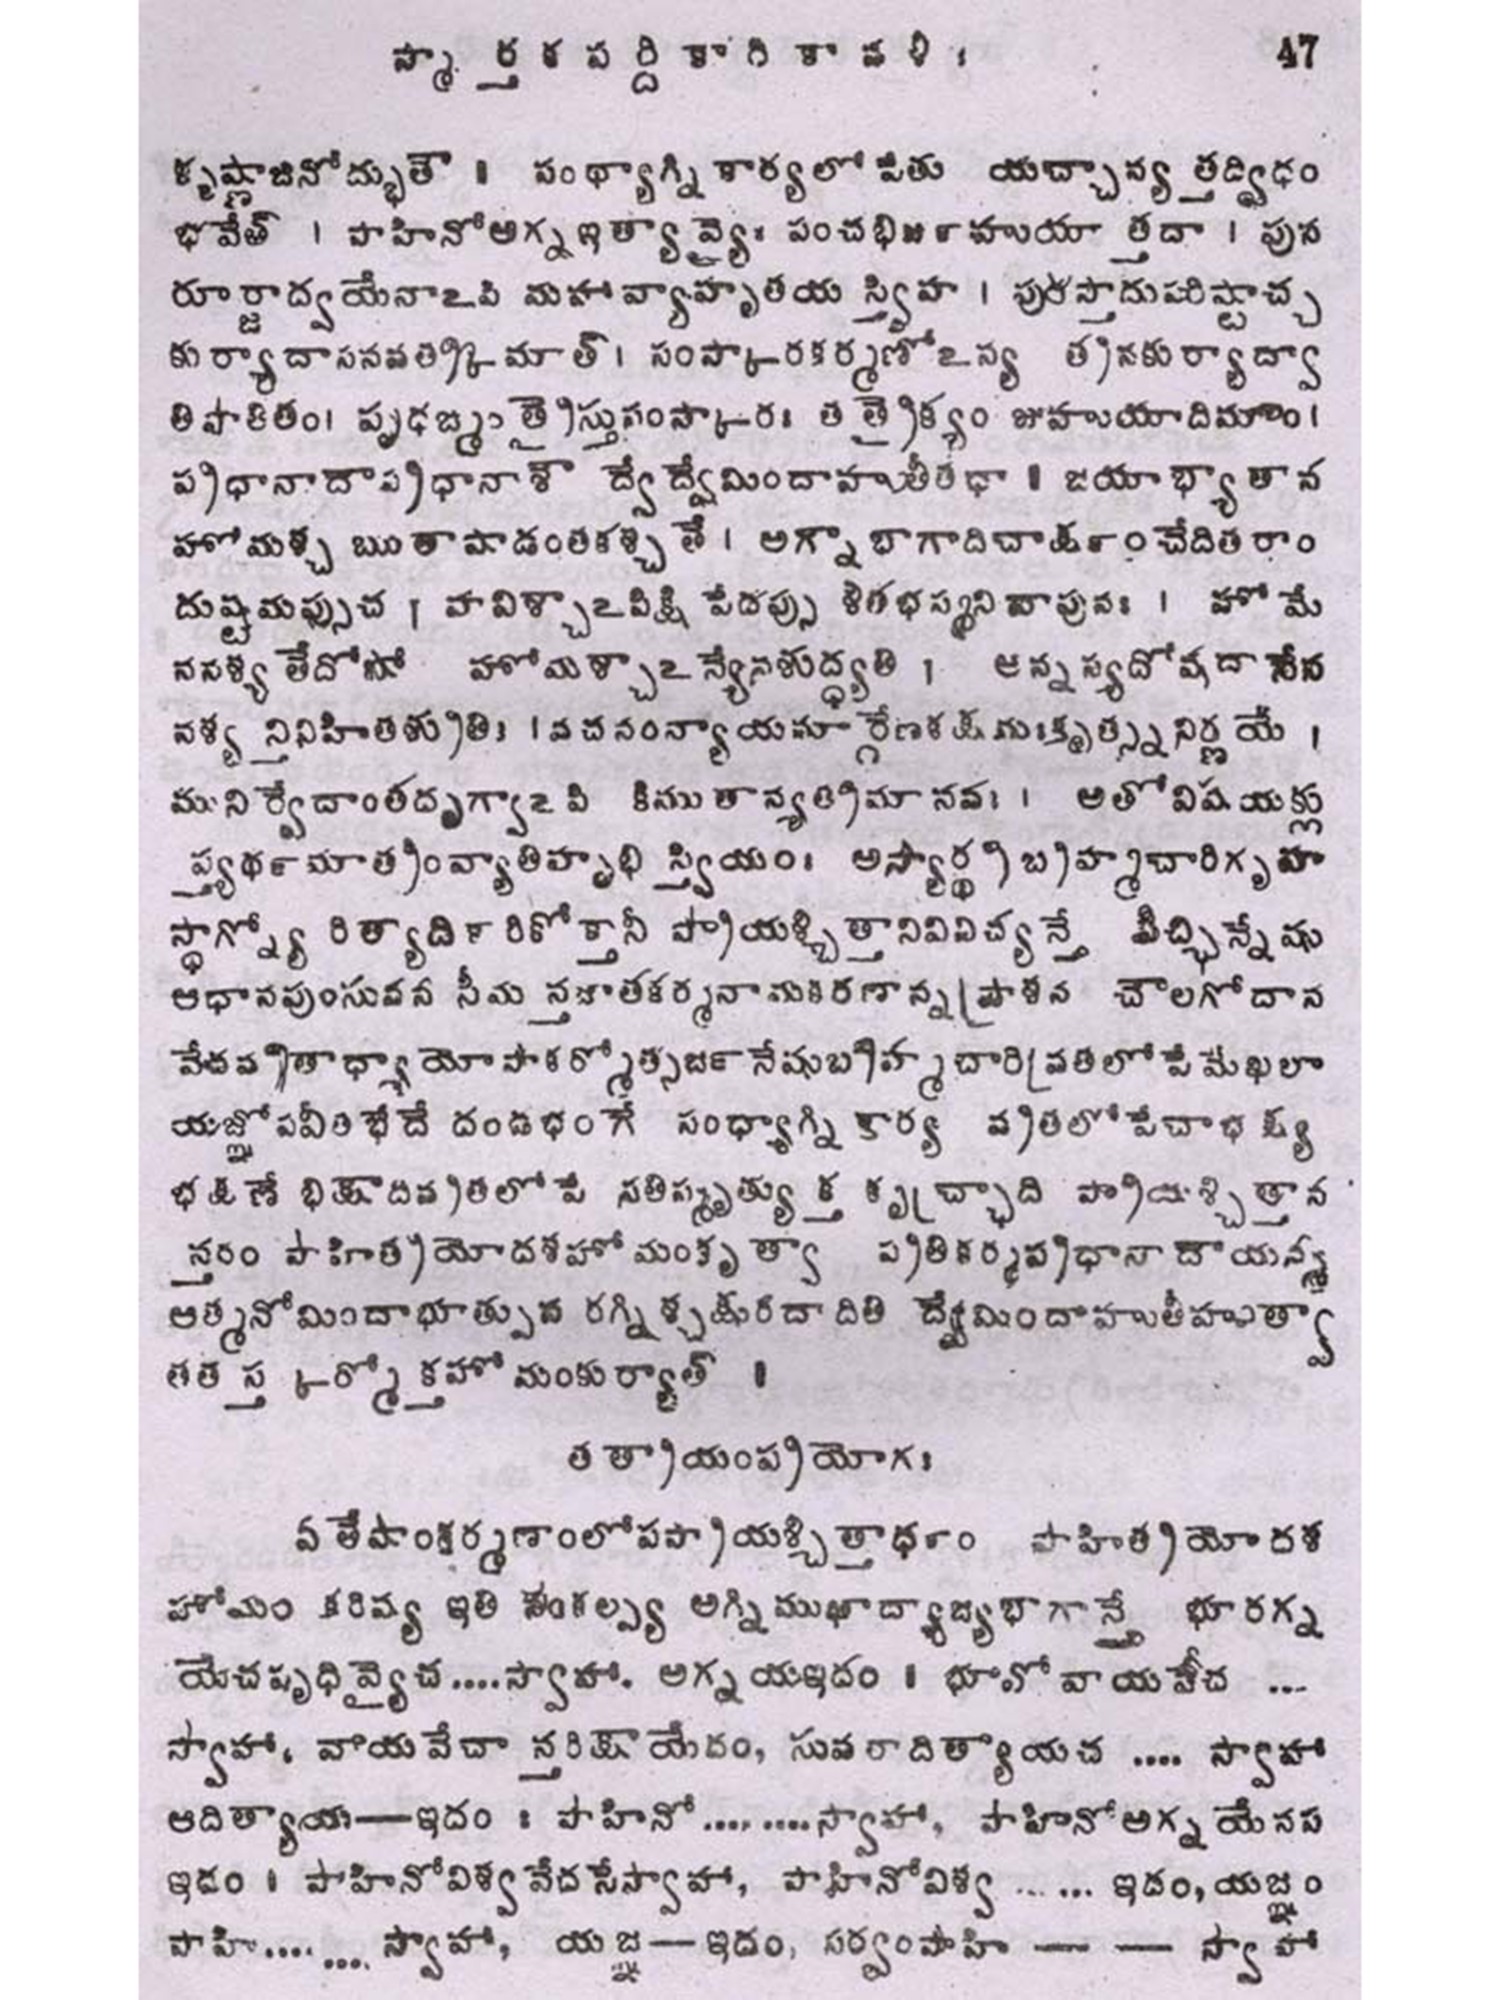 స్మార్తకపర్దికారికావళిః 47
కృష్ణాజినోద్భుతౌ ॥ సంధ్యాగ్ని కార్యలోపేతు యచ్చాన్య త్తద్విధం
భవేత్ । పాహినోఅగ్న ఇత్యా వ్యైః పంచభిర్జుహుయా త్తదా । పున
రూర్జాద్వయేనాఽపి మహావ్యాహృతయ స్త్విహ । పురస్తాదుపరిష్టాచ్చ
కుర్యాదాసనవత్క్రిమాత్। సంస్కారకర్మణోఽన్య త్రనకుర్యాద్వా
తిపాతితం। పృథఙ్మంత్రైస్తుసంస్కారః త త్రైక్యం జుహుయాదిమాం।
ప్రధానాదౌప్రధానాశౌ ద్వేద్వేమిందాహుతీతథా ॥ జయాభ్యాతాన
హోమశ్చ ఋతాషాడంతకశ్చ తే । అగ్నాభాగాదిచార్థం చేదితరాం
దుష్టమప్సుచ । హవిశ్చాఽపిక్షి పేదప్సు శీతభస్మనివాపునః । హోమే
ననశ్య తేదోషో హోమశ్చాఽన్యేనశుద్ధ్యతి । అన్నస్యదోషదానేన
నశ్య న్తినిహితశ్రుతిః ।వచనంన్యాయమార్గేణశక్షముఃకృత్స్ననిర్ణయే ।
మునిర్వేదాంతదృగ్వాఽపి కిముతాన్యత్రమానవః । అతోవిషయక్లు
ప్త్యర్థమాత్రంవ్యాతిహృభి స్త్వియం। అస్యార్థ బ్రహ్మచారిగృహ
స్థాగ్న్యో రిత్యాదికారికోక్తానీ ప్రాయశ్చిత్తానివివిచ్యన్తే విచ్ఛిన్నేషు
ఆధానపుంసువన సీమ న్తజాతకర్మనామకరణాన్నప్రాశన చౌలగోదాన
వేదవ్రతాధ్యాయోపాకర్మోత్సర్జనేషుబ్రహ్మచారివ్రతలోపే మేఖలా
యజ్ఞోపవీతభేదే దండభంగే సంధ్యాగ్ని కార్య వ్రతలోపేచాభక్ష్య
భక్షణే భిక్షాదివ్రతలోపే సతిస్మృత్యు క్త కృచ్ఛ్రాది ప్రాయశ్చిత్తాన
న్తరం పాహిత్రయోదశహోమంకృత్వా ప్రతికర్మప్రధానా దాయన్మ
ఆత్మనోమిందాభూత్పున రగ్నిశ్చక్షురదాదితి ద్వేమిందాహుతీహుత్వా
తత స్త త్కర్మోక్తహోమంకుర్యాత్ ॥
త త్రాయంప్రయోగః
ఏ తేషాంకర్మణాంలోపప్రాయశ్చిత్తార్థం పాహిత్రయోదశ
హోమం కరిష్య ఇతి సంకల్ప్య అగ్నిముఖాద్యాజ్యభాగాన్తే భూరగ్న
యేచపృథివ్యైచ....స్వాహా. అగ్నయఇదం । భూవో వాయవేచ ...
స్వాహా, వాయవేచా న్తరిక్షాయేదం, సువరాదిత్యాయచ .... స్వాహా
ఆదిత్యాయ—ఇదం : పాహినో........స్వాహా, పాహినోఅగ్నయేనస
ఇదం । పాహినోవిశ్వవేదసేస్వాహా, పాహినోవిశ్వ ...... ఇదం, యజ్ఞం
పాహి........ స్వాహా, యజ్ఞ—ఇదం, సర్వంపాహి — — స్వాహా